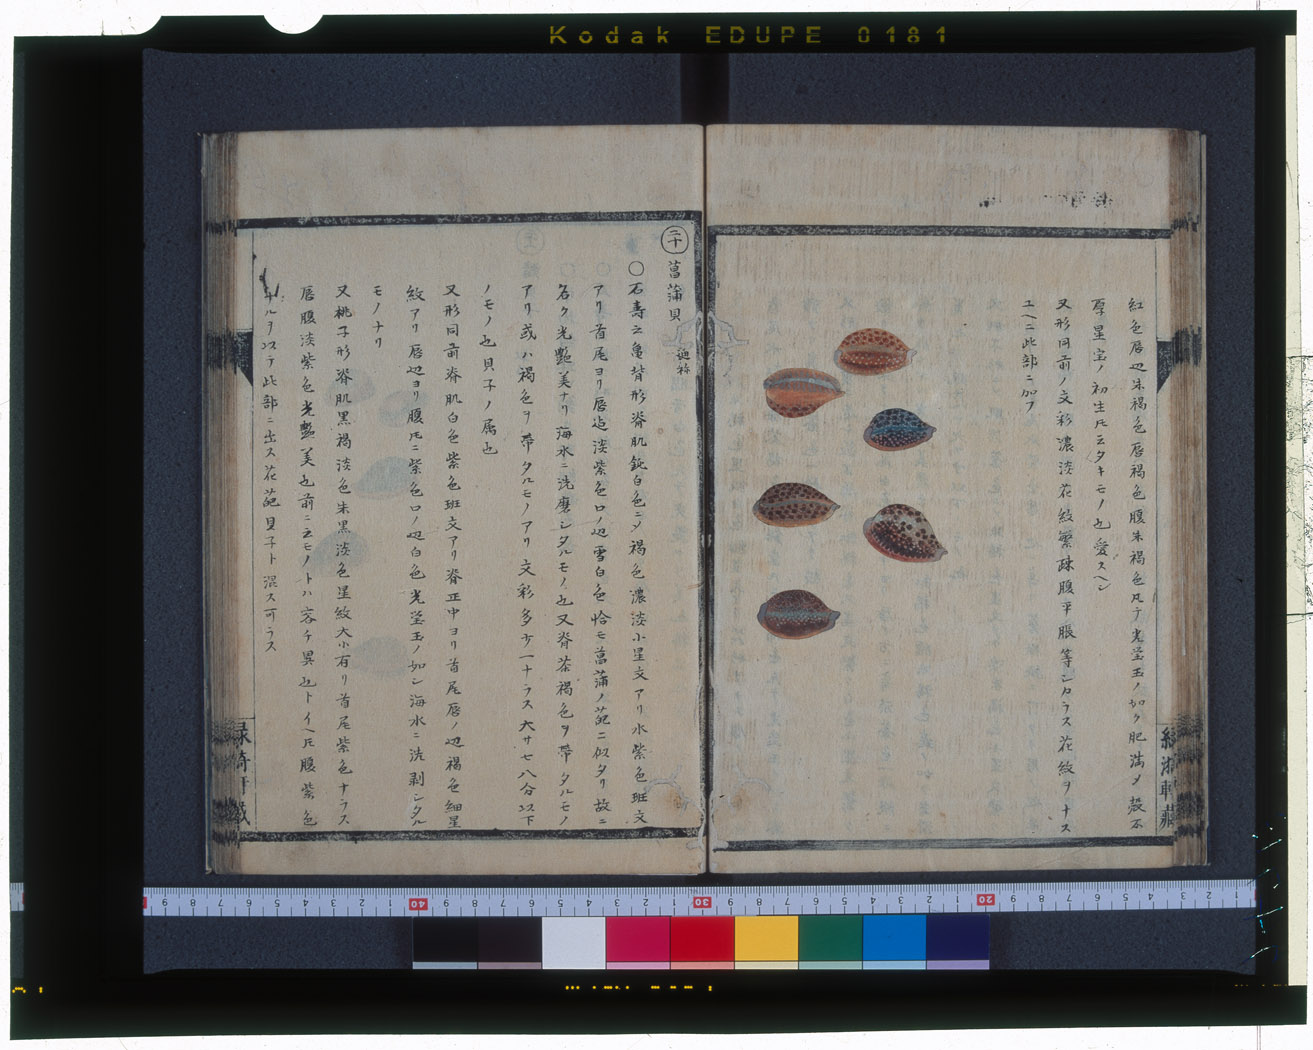 Kodak EDUPE 0181
紅色唇辺朱褐色唇褐色腹朱褐色凡テ光瑩玉ノ如ク肥満メ殻不
厚星宝ノ初生凡云タキモノ也愛スヘシ
又形同前ノ文彩濃淡花紋繁疎腹平脹等シカラス花紋ヲナス
ユヘニ此部ニ加フ
二十 菖蒲貝
〇石寿云亀背形脊肌鈍白色ニソ褐色濃淡小星文アリ水紫色班文
アリ首尾ヨリ唇迠淡紫色口ノ辺雪白色恰モ菖蒲ノ葩ニ似タリ故ニ
名ク光艶美ナリ海水ニ洗磨シタルモノ也又脊茶褐色ヲ帯タルモノ
アリ或ハ褐色ヲ帯タルモノアリ文彩多少一ナラス大サ七八分以下
ノモノ也貝子ノ属也
又形同前脊肌白色紫色班文アリ脊正中ヨリ首尾唇ノ辺褐色細星
紋アリ唇辺ヨリ腹凡ニ紫色口ノ辺白色光瑩玉ノ如シ海水ニ洗剥シタル
モノナリ
又桃子形脊肌黒褐淡色朱黒淡色星紋大小有リ首尾紫色ナラス
唇腹淡紫色光艶美也前ニ云モノトハ容チ異也トイヘ凡腹紫色
ナルヲ以テ此部ニ出ス花葩貝子ト混ス可ラス
緑漪軒蔵